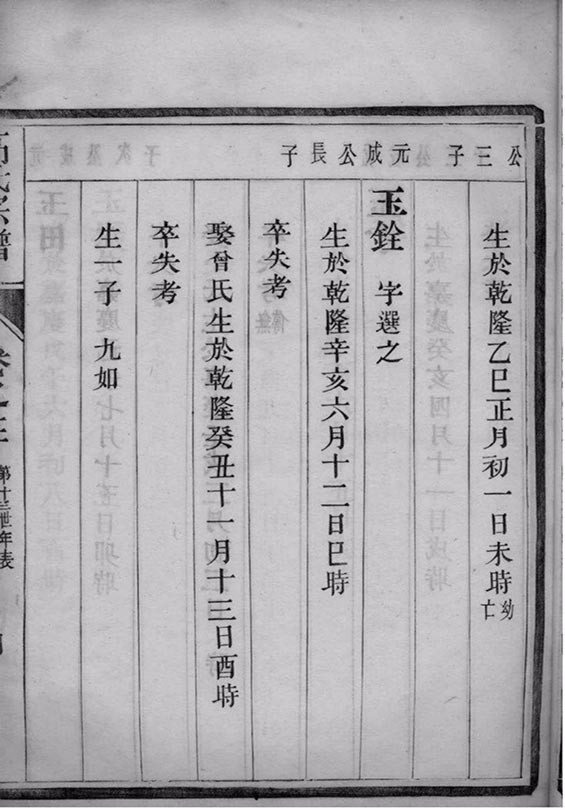 公三子
元成公長子
生於乾隆乙巳正月初一日未時幼亡
玉銓 字選之
生於乾隆辛亥六月十二日巳時
卒失考
娶曾氏生於乾隆癸丑十一月十三日酉時
卒失考
生一子九如
氏宗譜
第十三世年表